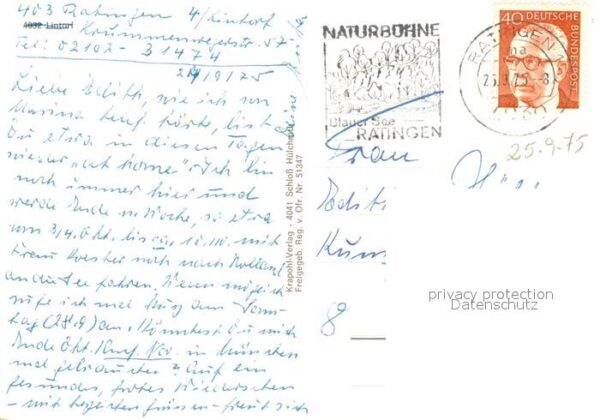 403 Ratingen 4/Lintorf
4032 Lintorf Krummenwegerstr. 57
Tel: 02102 - 31474
24/9/75
Liebe Edith, wie ich von
Marina telef. hörte, bist
Du etwa in diesen Tagen
wieder "at home". Ich bin
noch immer hier und
werde Ende d. Woche, so etwa
um 3/4. Okt. bis ca. 10.10. mit
Frau noch nach Holland
an die See fahren. Wenn möglich
rufe ich mal kurz am Sonn-
tag (28.9) an. Könntest Du mich
Ende Okt. Anf. Nov. in München
mal gebrauchen? Auf ein
gesundes, frohes Wiedersehen
- mit herzlichen Grüssen - freut sich
Krapohl-Verlag - 4041 Schloß Hülchrath
Freigegeb. Reg. v. Dfr. Nr. 51347
NATURBÜHNE
Blauer See
RATINGEN
RATINGEN
25.9.75-8
40 DEUTSCHE BUNDESPOST
25-9.75
Frau
Edit
8
privacy protection
Datenschutz